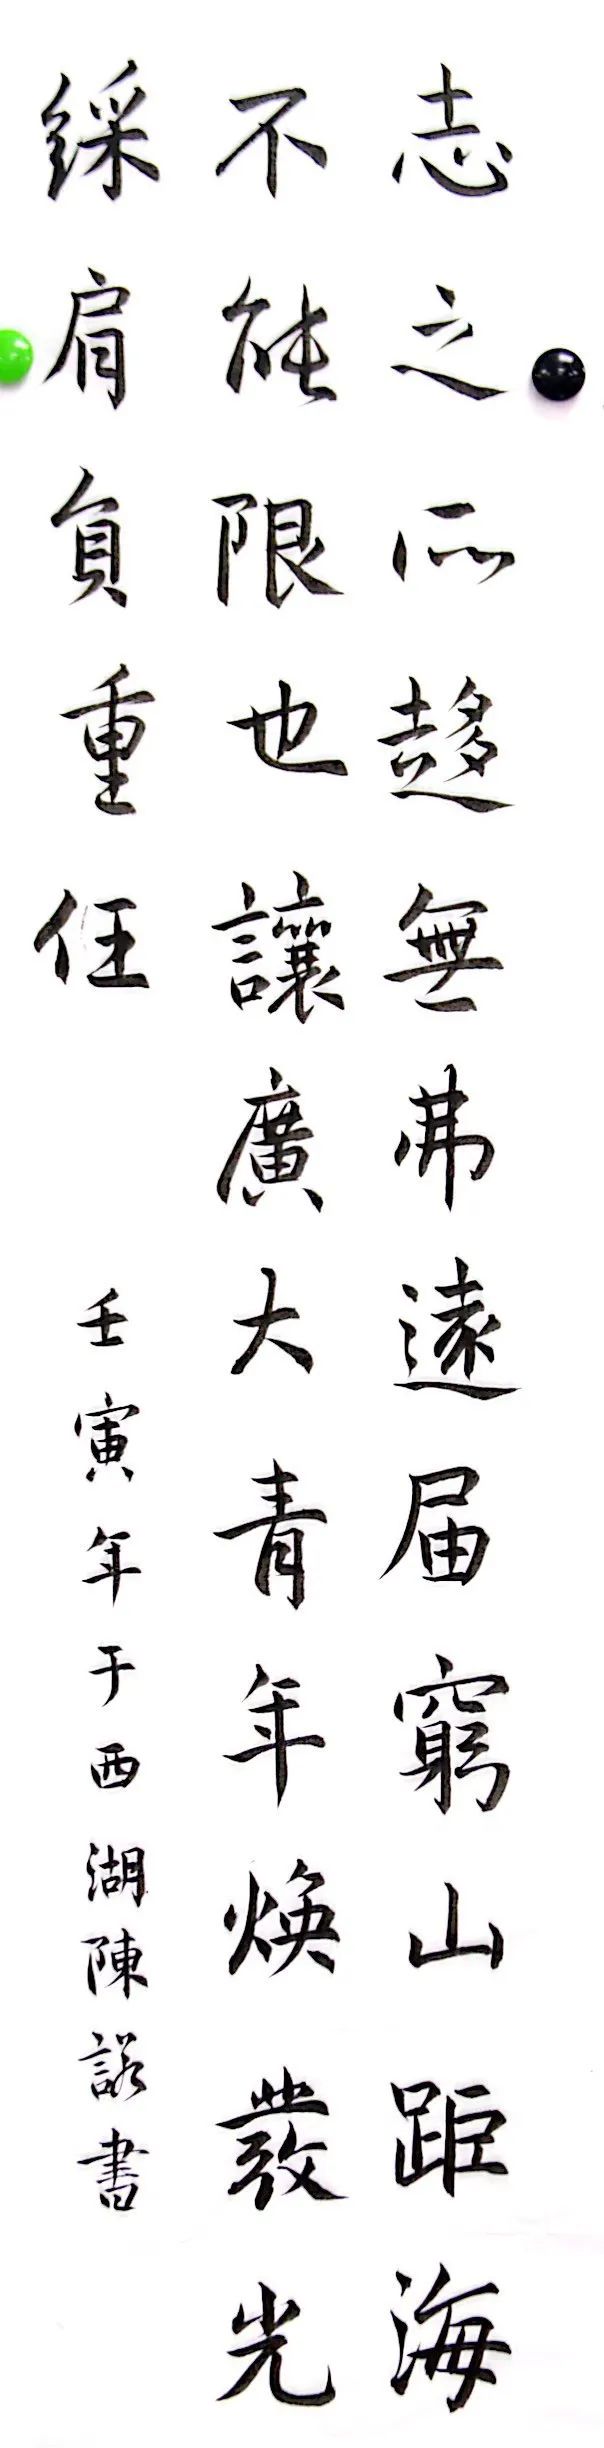 志之所趍無弗遠届窮山距海
不能限也讓廣大青年焕發光
綵肩負重任
壬寅年于西湖陳諾書